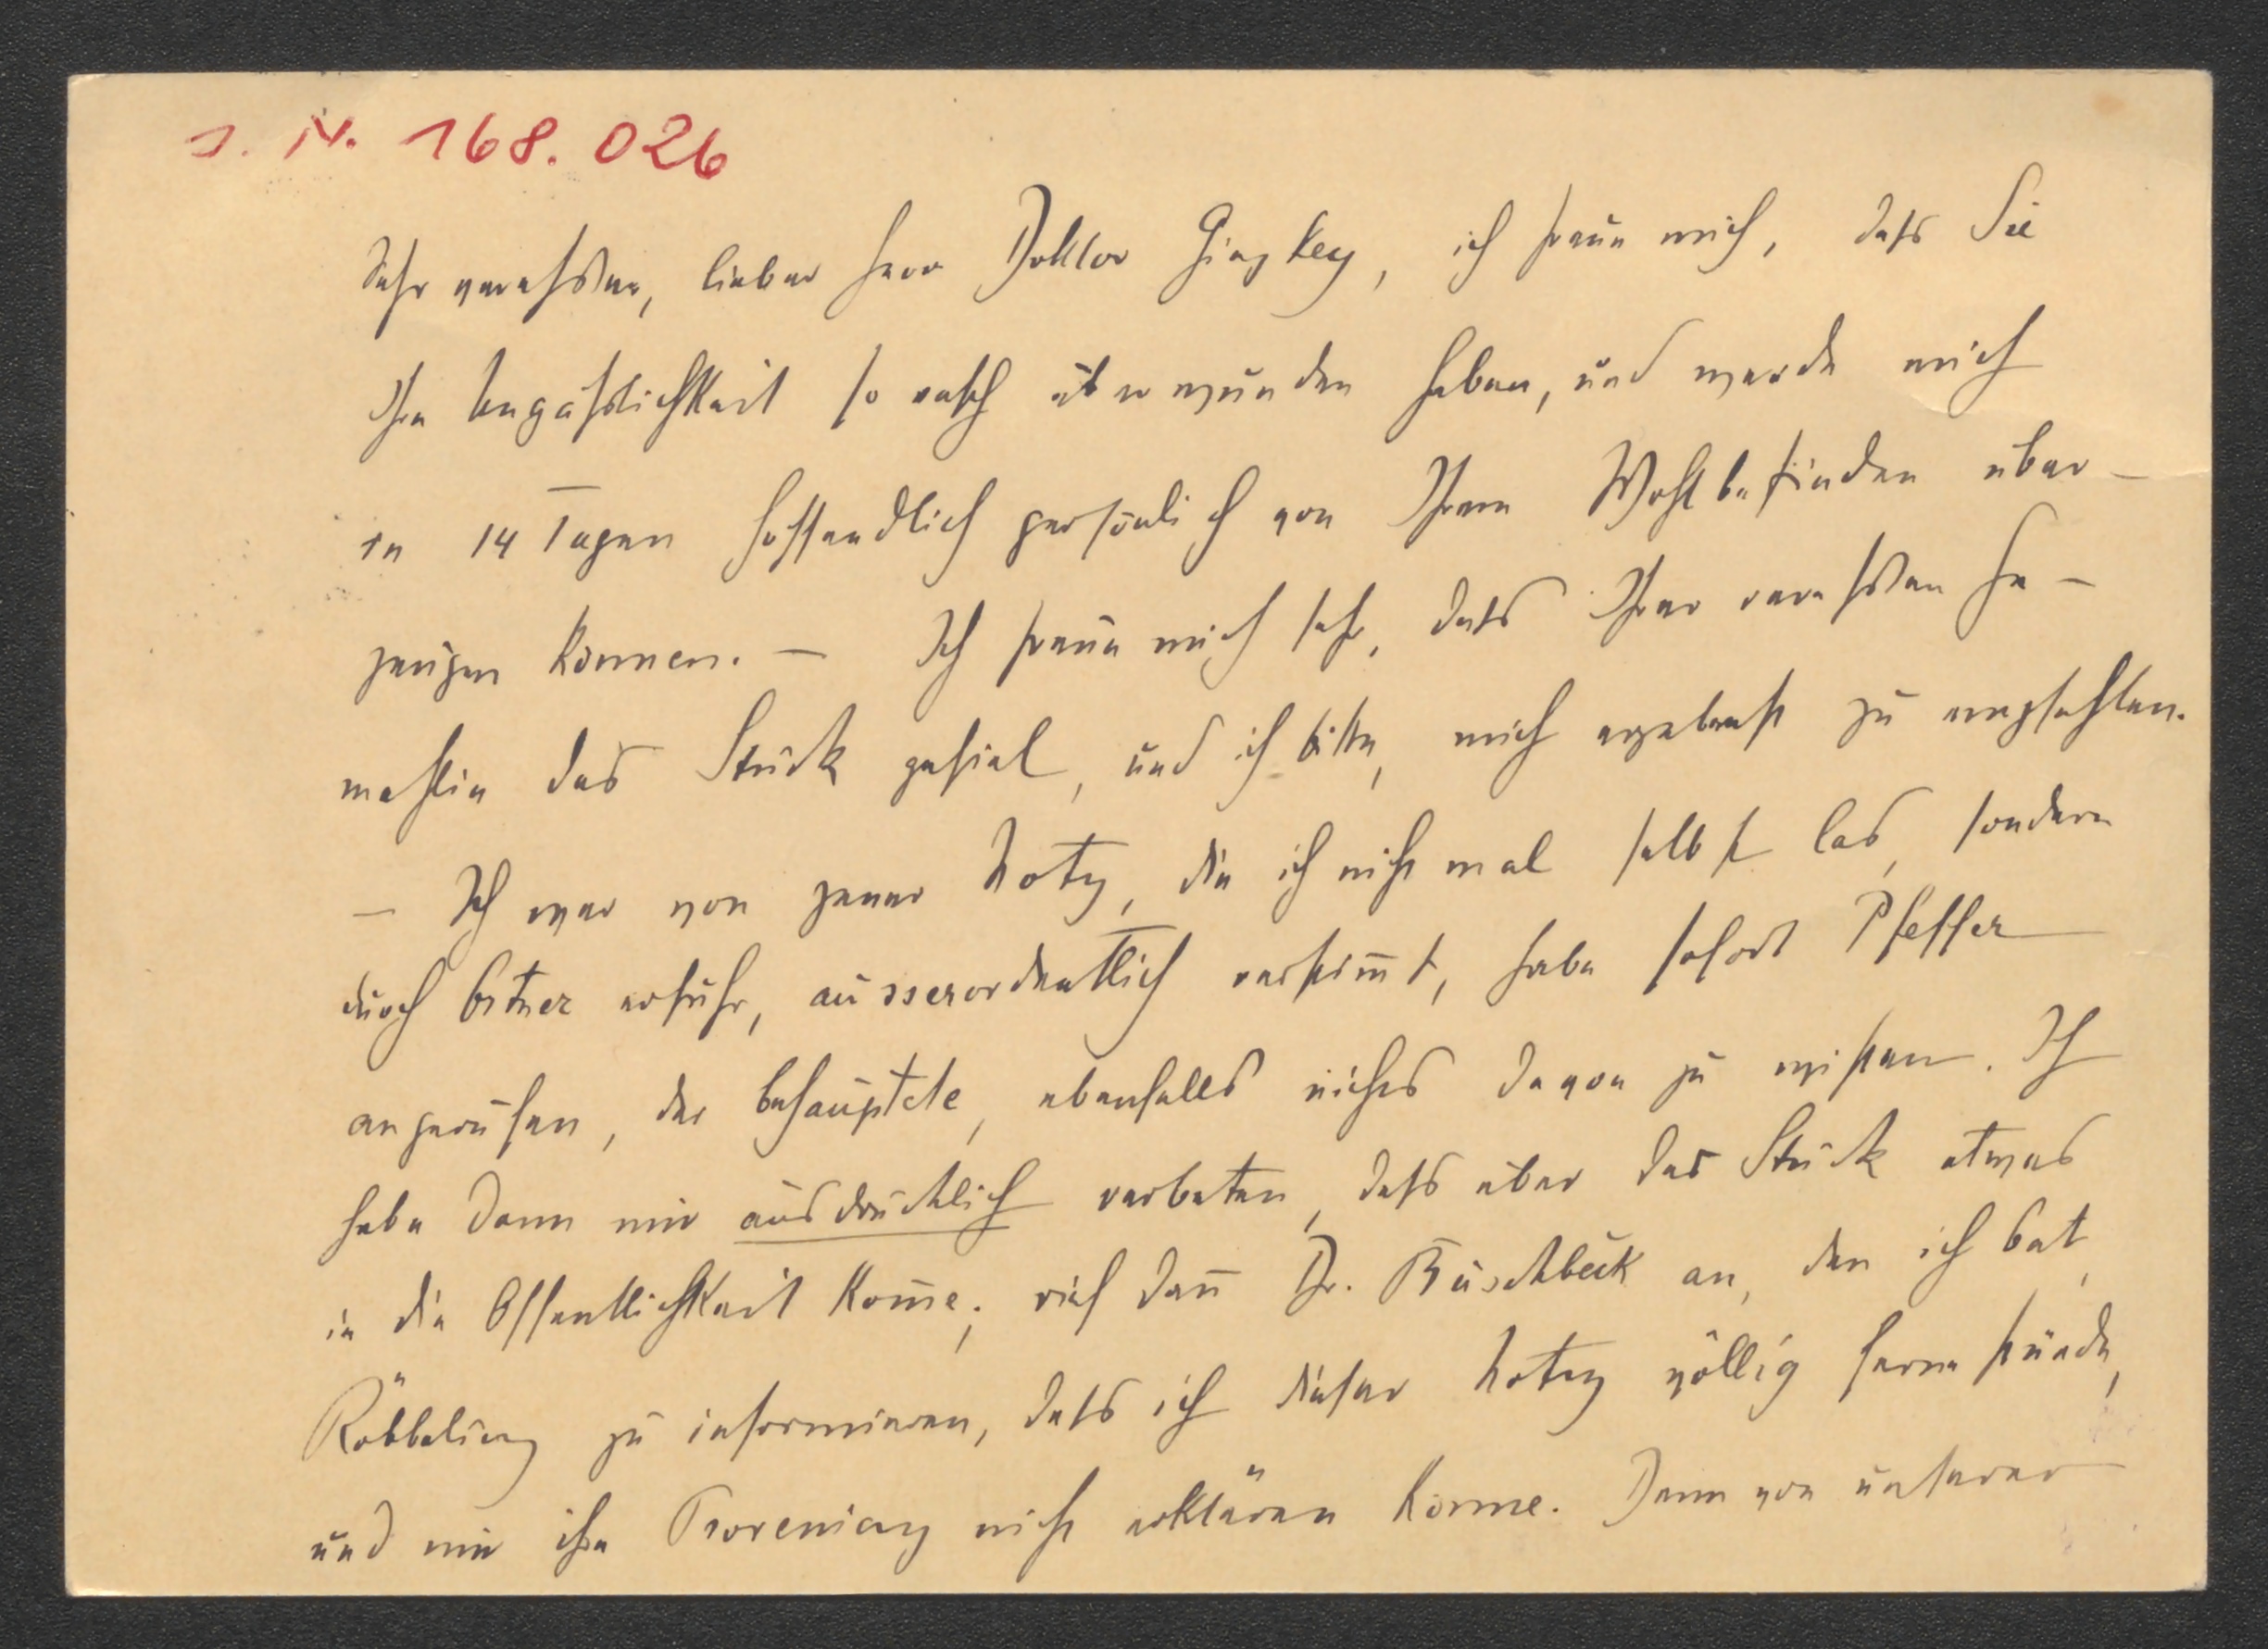 J. N. 168.026
Sehr verehrter, lieber Herr Doktor Ginzkey, ich freue mich, dass Sie
Ihre Unpässlichkeit so rasch überwunden haben, und werde mich
in 14 Tagen hoffendlich persönlich von Ihrem Wohlbefinden über-
zeugen können. — Ich freue mich sehr, dass Ihrer verehrten Ge-
mahlin das Stück gefiel, und ich bitte, mich ergebenst zu empfehlen.
— Ich war von jener Notiz, die ich nicht mal selbst las, sondern
durch Ortner erfuhr, ausserordentlich verstimmt, habe sofort Pfeffer
angerufen, der behauptete, ebenfalls nichts davon zu wissen. Ich
habe dann mir ausdrücklich verbeten, dass über das Stück etwas
in die Öffentlichkeit komme; rief dann Dr. Buschbeck an, den ich bat,
Röbbeling zu informieren, dass ich dieser Notiz völlig ferne stünde,
und mir ihre nicht erklären könne. Denn von unserer